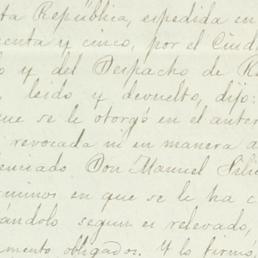 ta República, expedida en
enta y cinco, por el Ciud
o y del Despacho de R
, leido y devuelto, dijo:
que se le otorgó en el anter
revocada ni en manera a
enciado Don Manuel Feli
rminos en que se le ha c
andolo segun es relevado,
mento obligados. Y lo firmó,